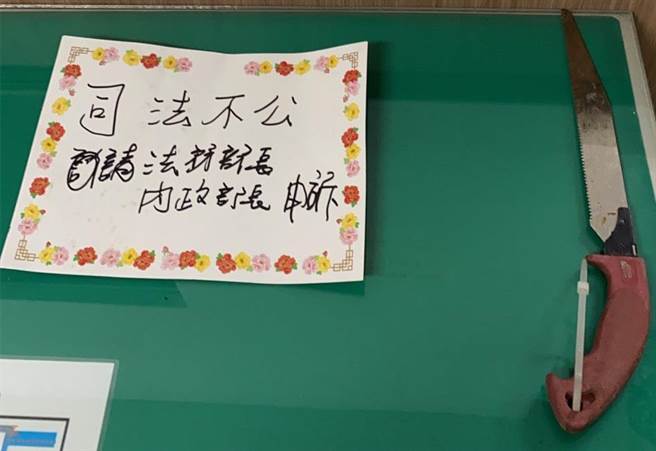 司法不公
請法務部長
內政部長 申訴